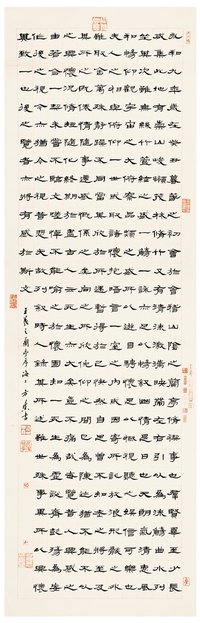 永和九年歲在癸丑暮春之初會於會稽山陰之蘭亭修禊事也群賢畢至少長
咸集此地有崇山峻領茂林修竹又有清流激湍映帶左右引以為流觴曲水列
坐其次雖無絲竹管絃之盛一觴一詠亦足以暢敘幽情是日也天朗氣清惠風
和暢仰觀宇宙之大俯察品類之盛所以遊目騁懷足以極視聽之娛信可樂也
夫人之相與俯仰一世或取諸懷抱悟言一室之內或因寄所託放浪形骸之外
雖取舍萬殊靜躁不同當其欣於所遇暫得於己快然自足曾不知老之將至及
其所之既惓情隨事遷感慨係之矣向之所欣俯仰之間已為陳迹猶不能不以
之興懷況修短隨化終期於盡古人云死生亦大矣豈不痛哉每覽昔人興感之
由若合一契未嘗不臨文嗟悼不能喻之於懷固知一死生為虛誕齊彭殤為妄
作後之視今亦猶今之視昔悲夫故列敘時人錄其所述雖世殊事異所以興懷
其致一也後之覽者亦將有感於斯文
王羲之蘭亭序